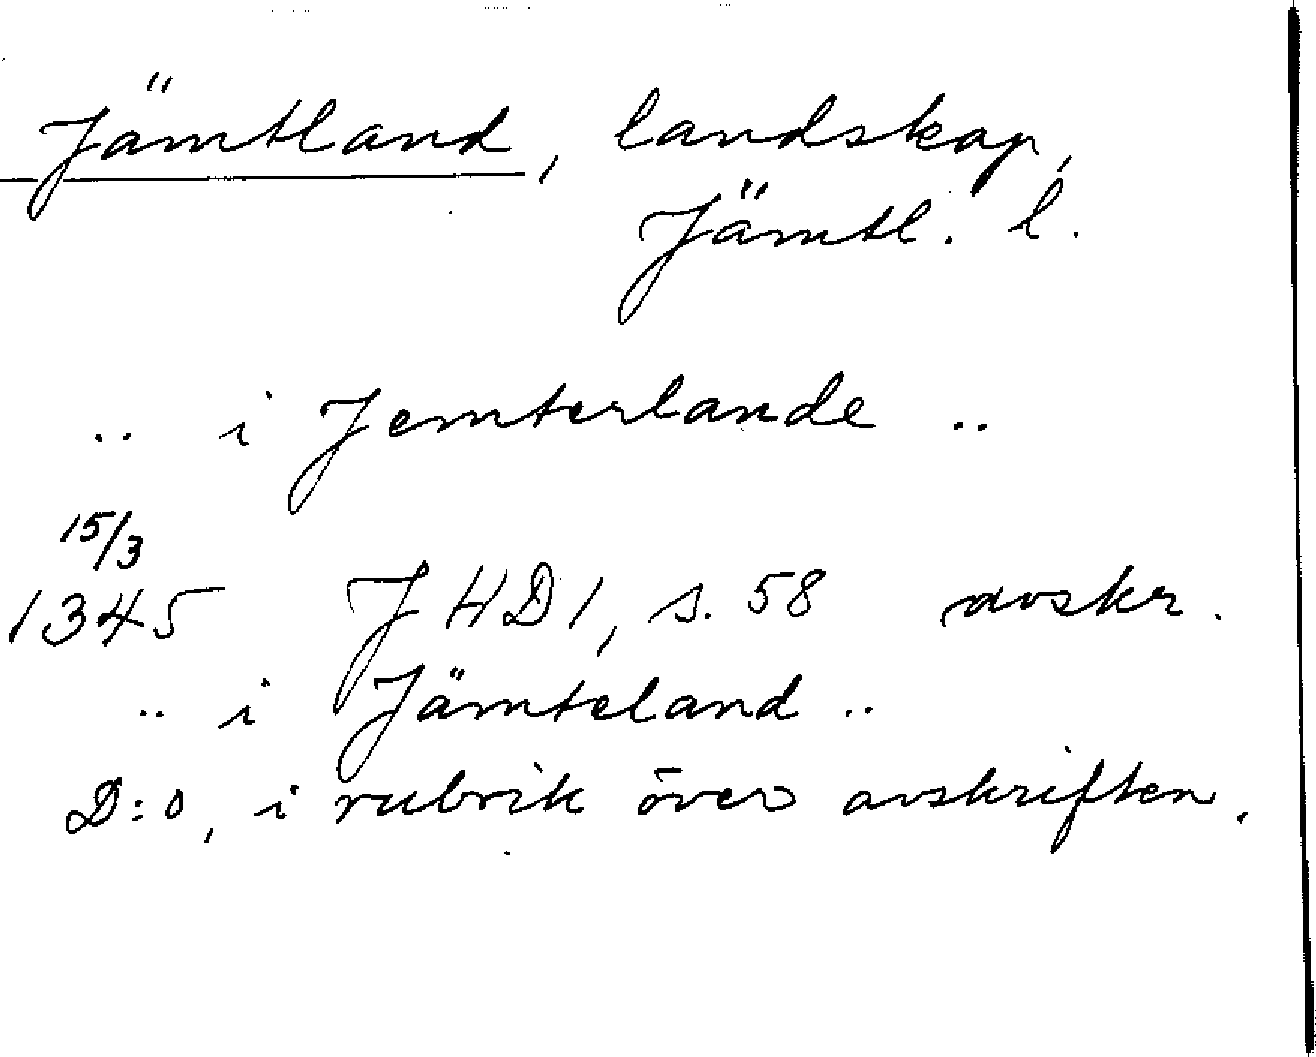 Jämtland, landskap,
Jämtl. l.
.. i Jemterlande ..
15/3
1345 JHD1, s. 58 avskr.
.. i Jämteland ..
D:o, i rubrik över avskriften.